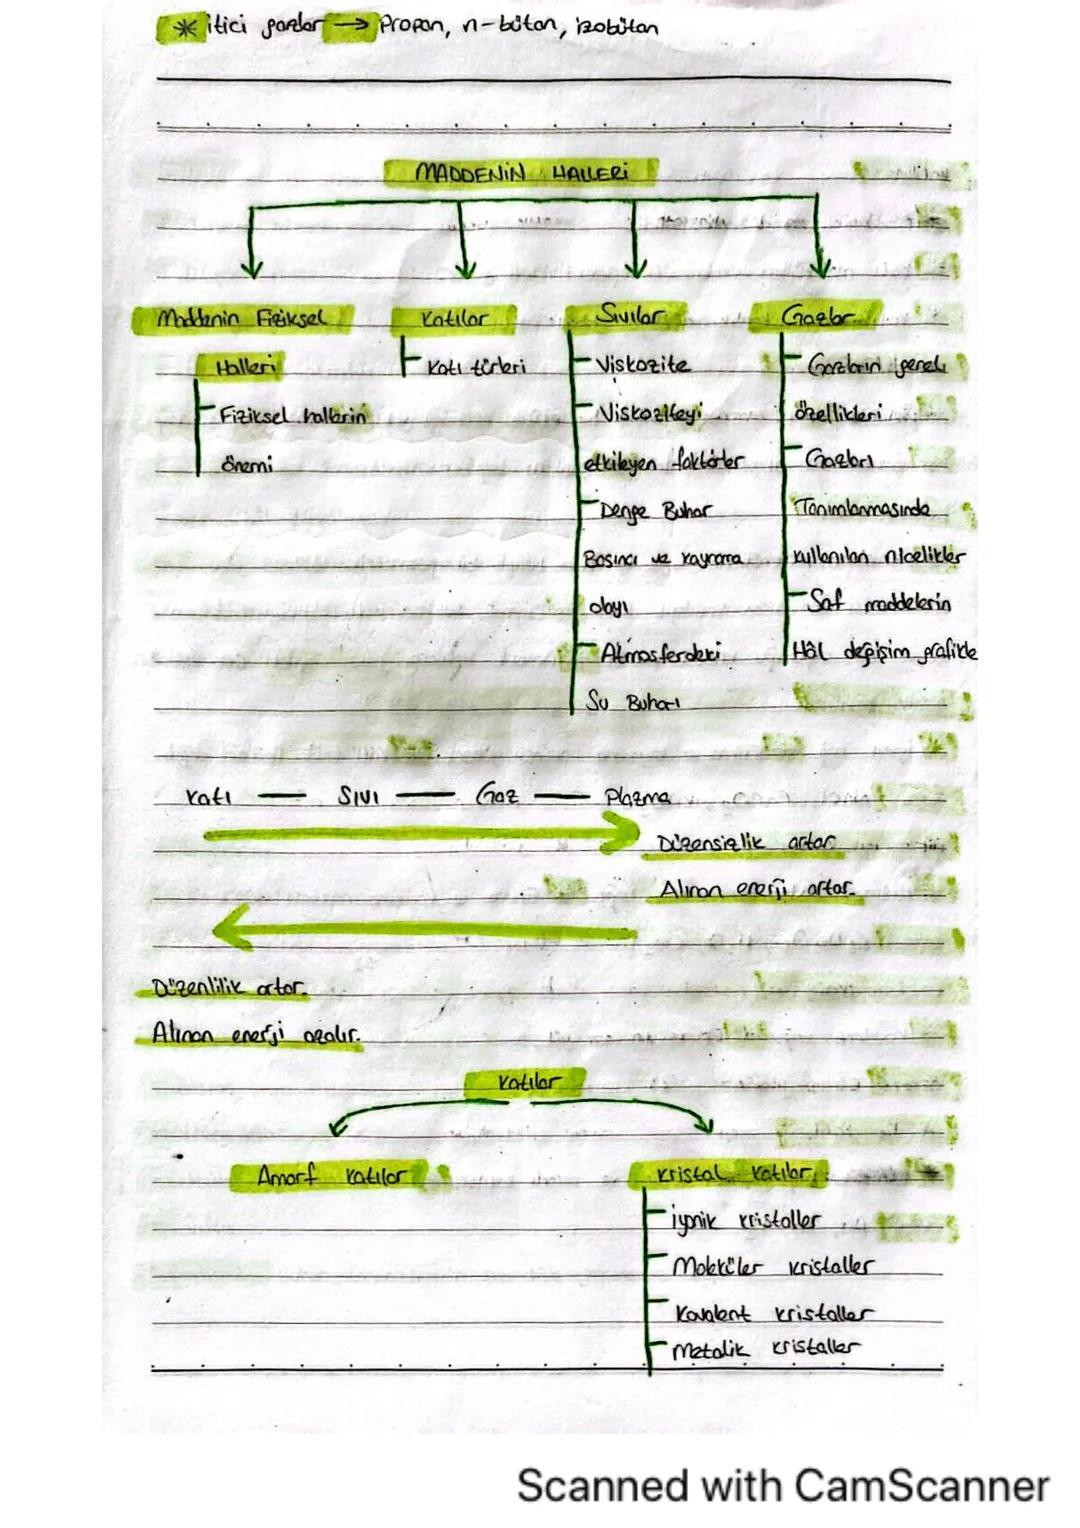 * itici gazlar → Propan, n-bütan, izobütan
MADDENİN HALLERİ
Maddenin Fiziksel
Halleri
Fiziksel hallerin
önemi
Katılar
Katı türleri
Sıvılar
Viskozite
Viskoziteyi
etkileyen faktörler
Denge Buhar
Basıncı ve Kaynama
olayı
Atmosferdeki
Su Buharı
Gazlar
Gazların genel
özellikleri
Gazları
Tanımlanmasında
kullanılan nicelikler
Saf maddelerin
Hâl değişim grafikle
Katı — Sıvı — Gaz — Plazma
Düzensizlik artar
Alınan enerji artar.
Düzenlilik artar.
Alınan enerji azalır.
Katılar
Amorf Katılar
Kristal Katılar
iyonik kristaller
Moleküler kristaller
Kovalent kristaller
Metalik kristaller
Scanned with CamScanner